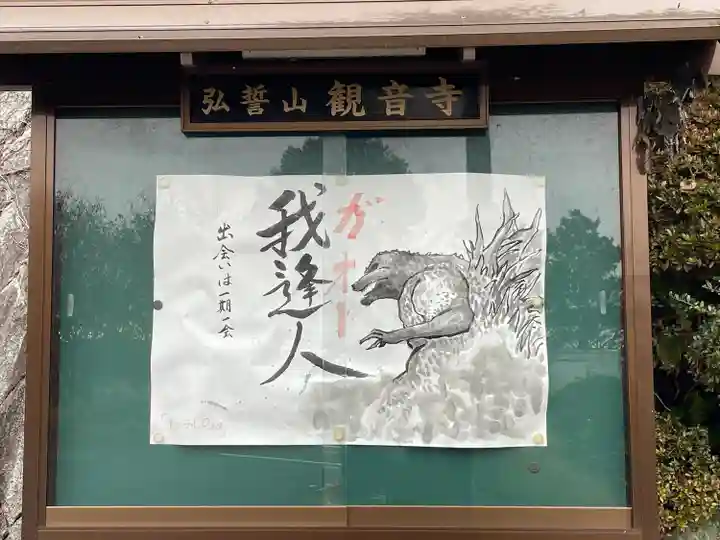 弘誓山 観音寺
ガオー
我逢人
出会いは一期一会